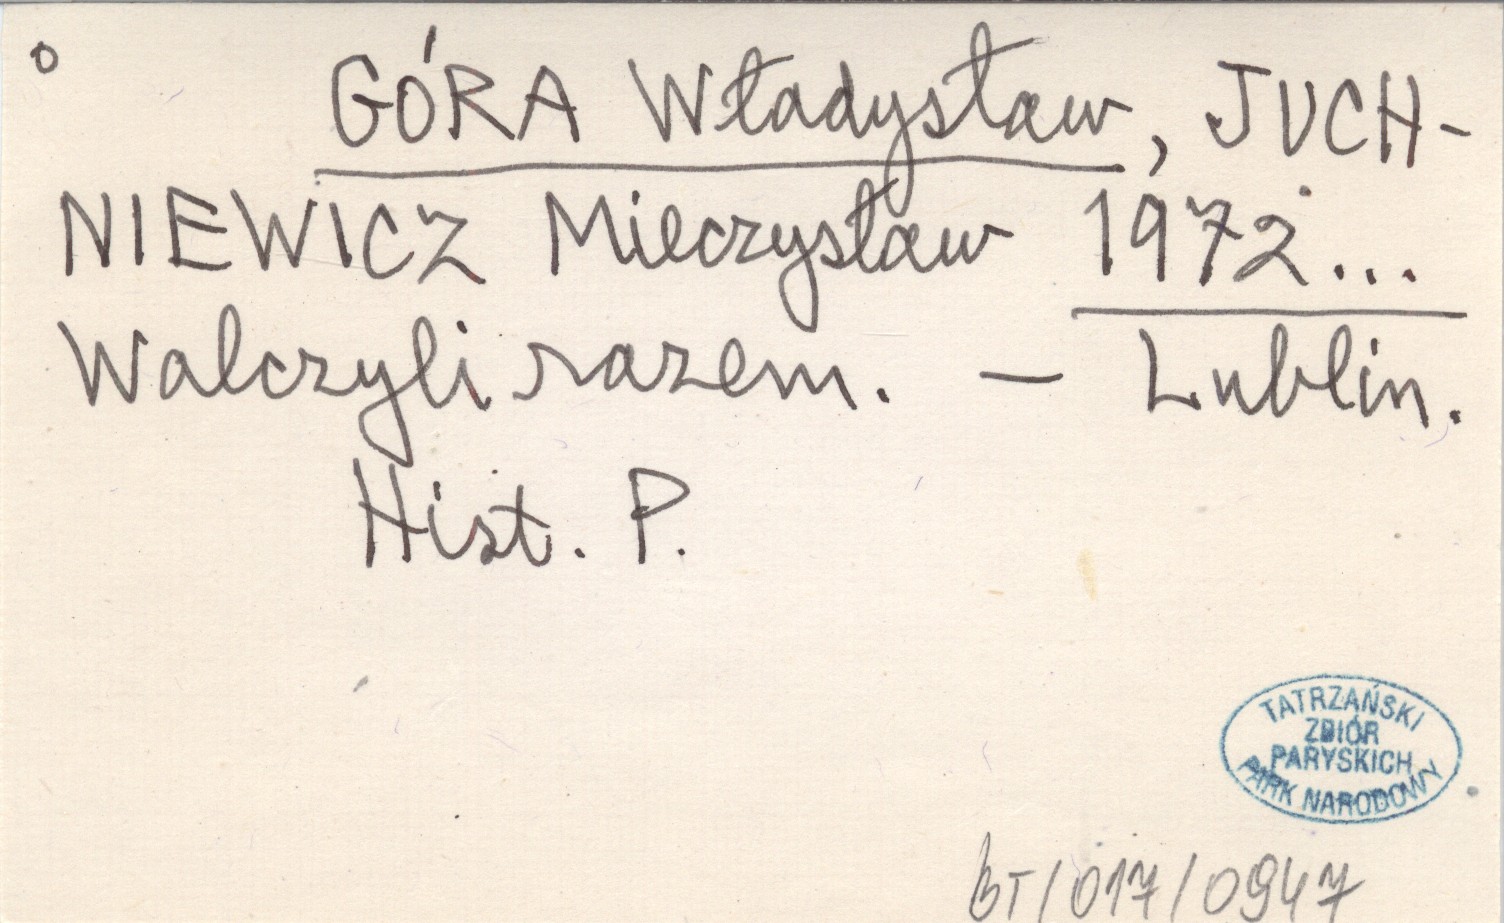 o GÓRA Władysław, JUCH-
NIEWICZ Mieczysław 1972...
Walczyli razem. — Lublin.
Hist. P.
TATRZAŃSKI
ZBIÓR
PARYSKICH
PARK NARODOWY
BT/017/0947